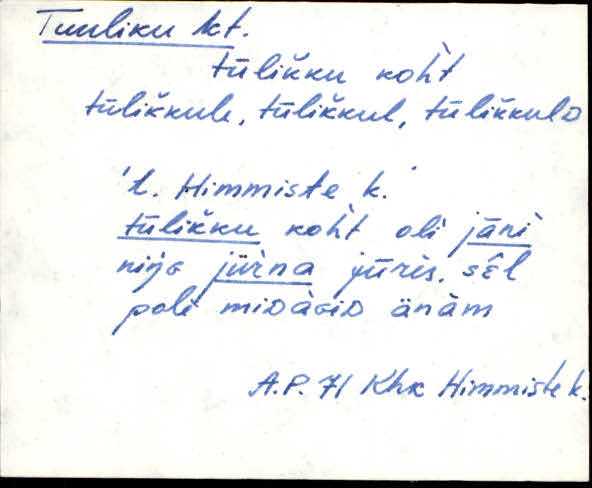 Tuuliku kt.
tūlik̆ku koh̀t
tūlik̆kule, tūlik̆kul, tūlik̆kulD
't. Himmiste k.
tūlik̆ku koh̀t oli jāǹi
niǹg jüŕna jūris. sēl
pole miDàGiD änàm
A.P. 71 Khk Himmiste k.